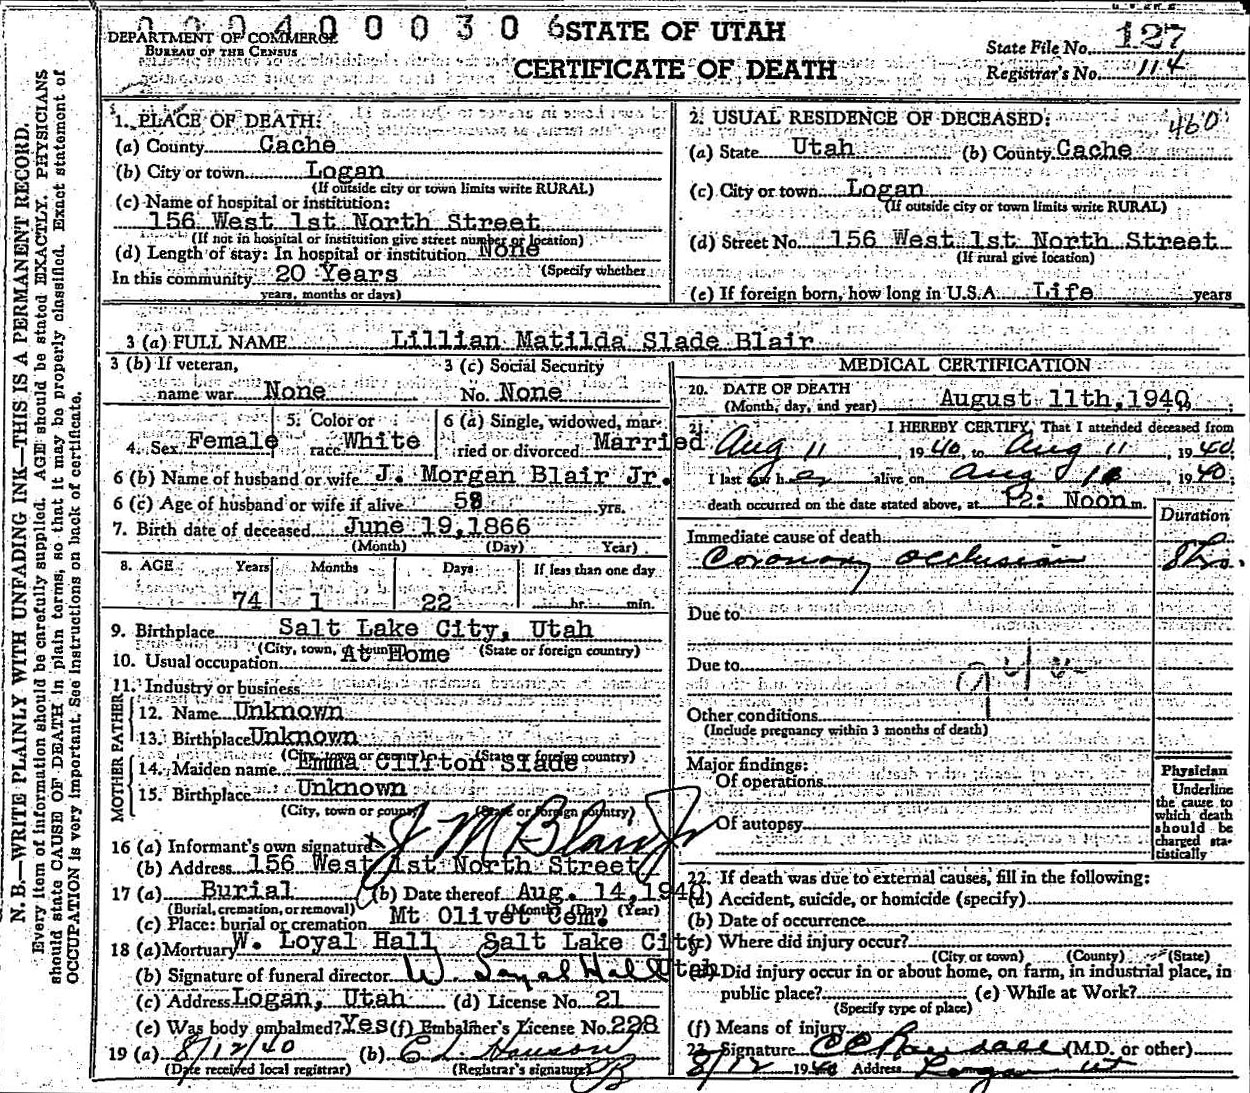 0 0 0 4 0 0 0 3 0 6
STATE OF UTAH
DEPARTMENT OF COMMERCE
BUREAU OF THE CENSUS
CERTIFICATE OF DEATH
State File No. 127
Registrar's No. 114
N. B.—WRITE PLAINLY WITH UNFADING INK—THIS IS A PERMANENT RECORD.
Every item of information should be carefully supplied. AGE should be stated EXACTLY. PHYSICIANS
should state CAUSE OF DEATH in plain terms, so that it may be properly classified. Exact statement of
OCCUPATION is very important. See instructions on back of certificate.
1. PLACE OF DEATH:
(a) County Cache
(b) City or town Logan
(If outside city or town limits write RURAL)
(c) Name of hospital or institution:
156 West 1st North Street
(If not in hospital or institution give street number or location)
(d) Length of stay: In hospital or institution None
In this community 20 Years (Specify whether
years, months or days)
2. USUAL RESIDENCE OF DECEASED: 460
(a) State Utah (b) County Cache
(c) City or town Logan
(If outside city or town limits write RURAL)
(d) Street No. 156 West 1st North Street
(If rural give location)
(e) If foreign born, how long in U.S.A. Life years
3 (a) FULL NAME Lillian Matilda Slade Blair
3 (b) If veteran,
name war None
3 (c) Social Security
No. None
4. Sex Female
5. Color or
race White
6 (a) Single, widowed, mar-
ried or divorced Married
6 (b) Name of husband or wife J. Morgan Blair Jr.
6 (c) Age of husband or wife if alive yrs.
7. Birth date of deceased June 19, 1866
(Month) (Day) Year)
8. AGE Years Months Days If less than one day
74 1 22 hr. min.
9. Birthplace Salt Lake City, Utah
(City, town, or county) (State or foreign country)
10. Usual occupation At Home
11. Industry or business
FATHER
12. Name Unknown
13. Birthplace Unknown
(City, town or county) (State or foreign country)
MOTHER
14. Maiden name Emma Clifton Slade
15. Birthplace Unknown
(City, town or county) (State or foreign country)
16 (a) Informant's own signature x J M Blair Jr
(b) Address 156 West 1st North Street
17 (a) Burial (b) Date thereof Aug. 14, 1940
(Burial, cremation, or removal) (Month) (Day) (Year)
(c) Place: burial or cremation Mt Olivet Cem.
18 (a) Mortuary W. Loyal Hall Salt Lake City
Utah
(b) Signature of funeral director W. Loyal Hall
(c) Address Logan, Utah (d) License No. 21
(e) Was body embalmed? Yes (f) Embalmer's License No. 228
19 (a) 8/12/40 (b) C L Hansen
(Date received local registrar) (Registrar's signature)
MEDICAL CERTIFICATION
20. DATE OF DEATH
(Month, day, and year) August 11th, 1940
21. I HEREBY CERTIFY, That I attended deceased from
Aug 11, 1940, to Aug 11, 1940,
I last saw her alive on Aug, 1940;
death occurred on the date stated above, at 12: Noon m.
Duration
Immediate cause of death
Coronary occlusion
Due to
Due to
Other conditions
(Include pregnancy within 3 months of death)
Major findings:
Of operations
Of autopsy
Physician
Underline
the cause to
which death
should be
charged sta-
tistically
22. If death was due to external causes, fill in the following:
(a) Accident, suicide, or homicide (specify)
(b) Date of occurrence
(c) Where did injury occur?
(City or town) (County) (State)
(d) Did injury occur in or about home, on farm, in industrial place, in
public place? (e) While at Work?
(Specify type of place)
(f) Means of injury
23. Signature C C Randall (M.D. or other)
8/12 1940 Address Logan Ut